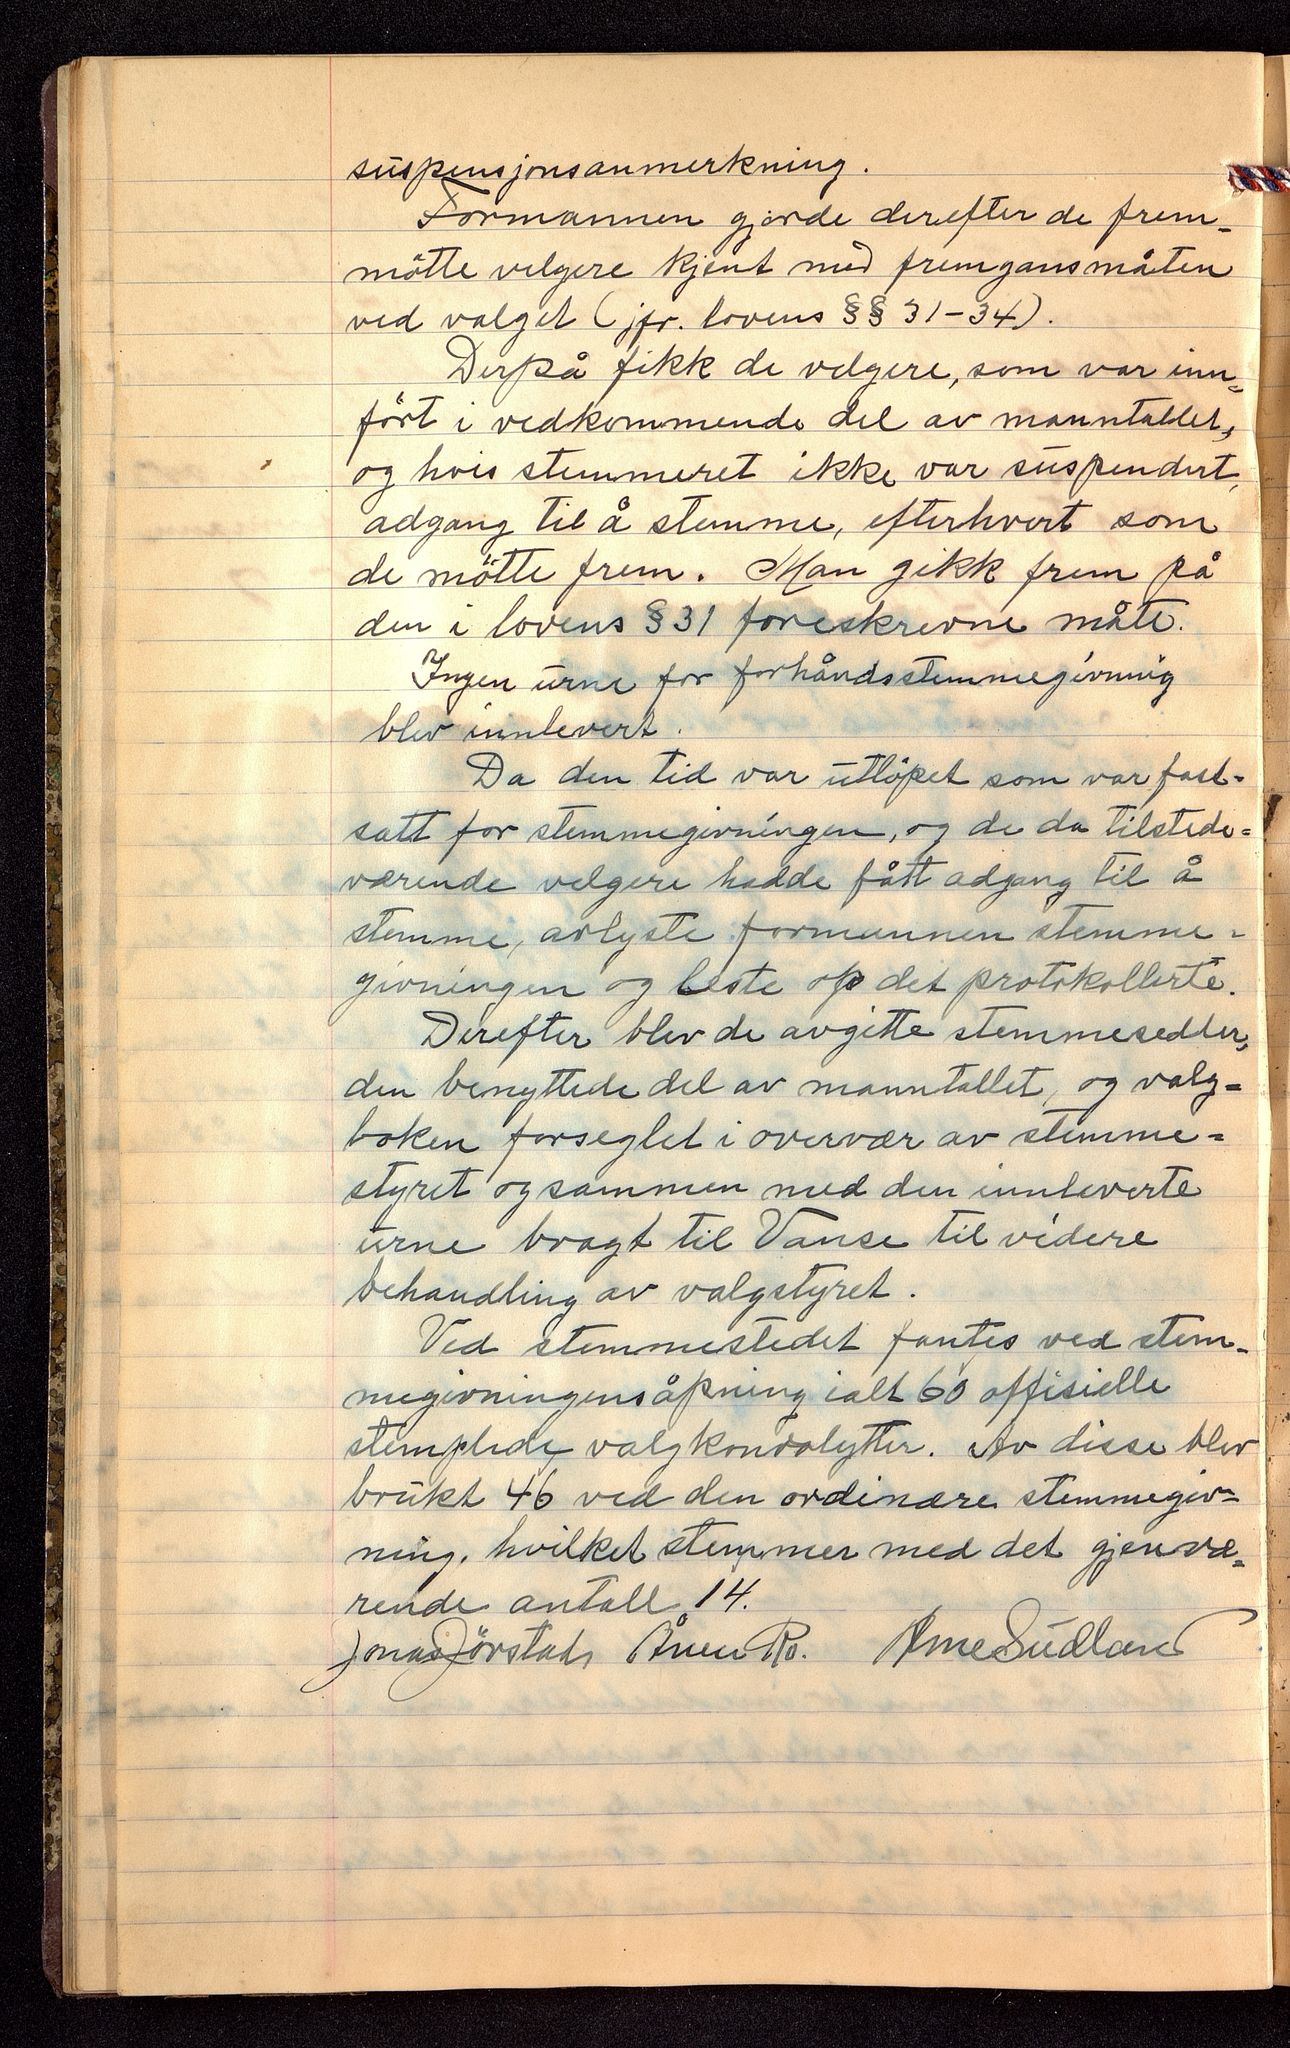 suspensjonsanmerkning.
Formannen gjorde derefter de frem-
mötte velgere kjent med fremgansmåten
ved valget (jfr. lovens §§ 31-34).
Derpå fikk de velgere, som var inn-
fört i vedkommende del av manntallet,
og hvis stemmeret ikke var suspendert,
adgang til å stemme, efterhvert som
de mötte frem. Man gikk frem på
den i lovens § 31 foreskrevne måte.
Ingen urne for forhåndsstemmegivning
blev innlevert.
Da den tid var utlöpet som var fast-
satt for stemmegivningen, og de da tilstede-
værende velgere hadde fått adgang til å
stemme, avlyste formannen stemme-
givningen og leste op det protokollerte.
Derefter blev de avgitte stemmesedler,
den benyttede del av manntallet, og valg-
boken forseglet i overvær av stemme-
styret og sammen med den innleverte
urne bragt til Vanse til videre
behandling av valgstyret.
Ved stemmestedet fantes ved stem-
megivningens åpning ialt 60 offisielle
stemplede valgkonvolutter. Av disse blev
brukt 46 ved den ordinære stemmegiv-
ning. hvilket stemmer med det gjenvæ-
rende antall 14.
Jonas Jörstad